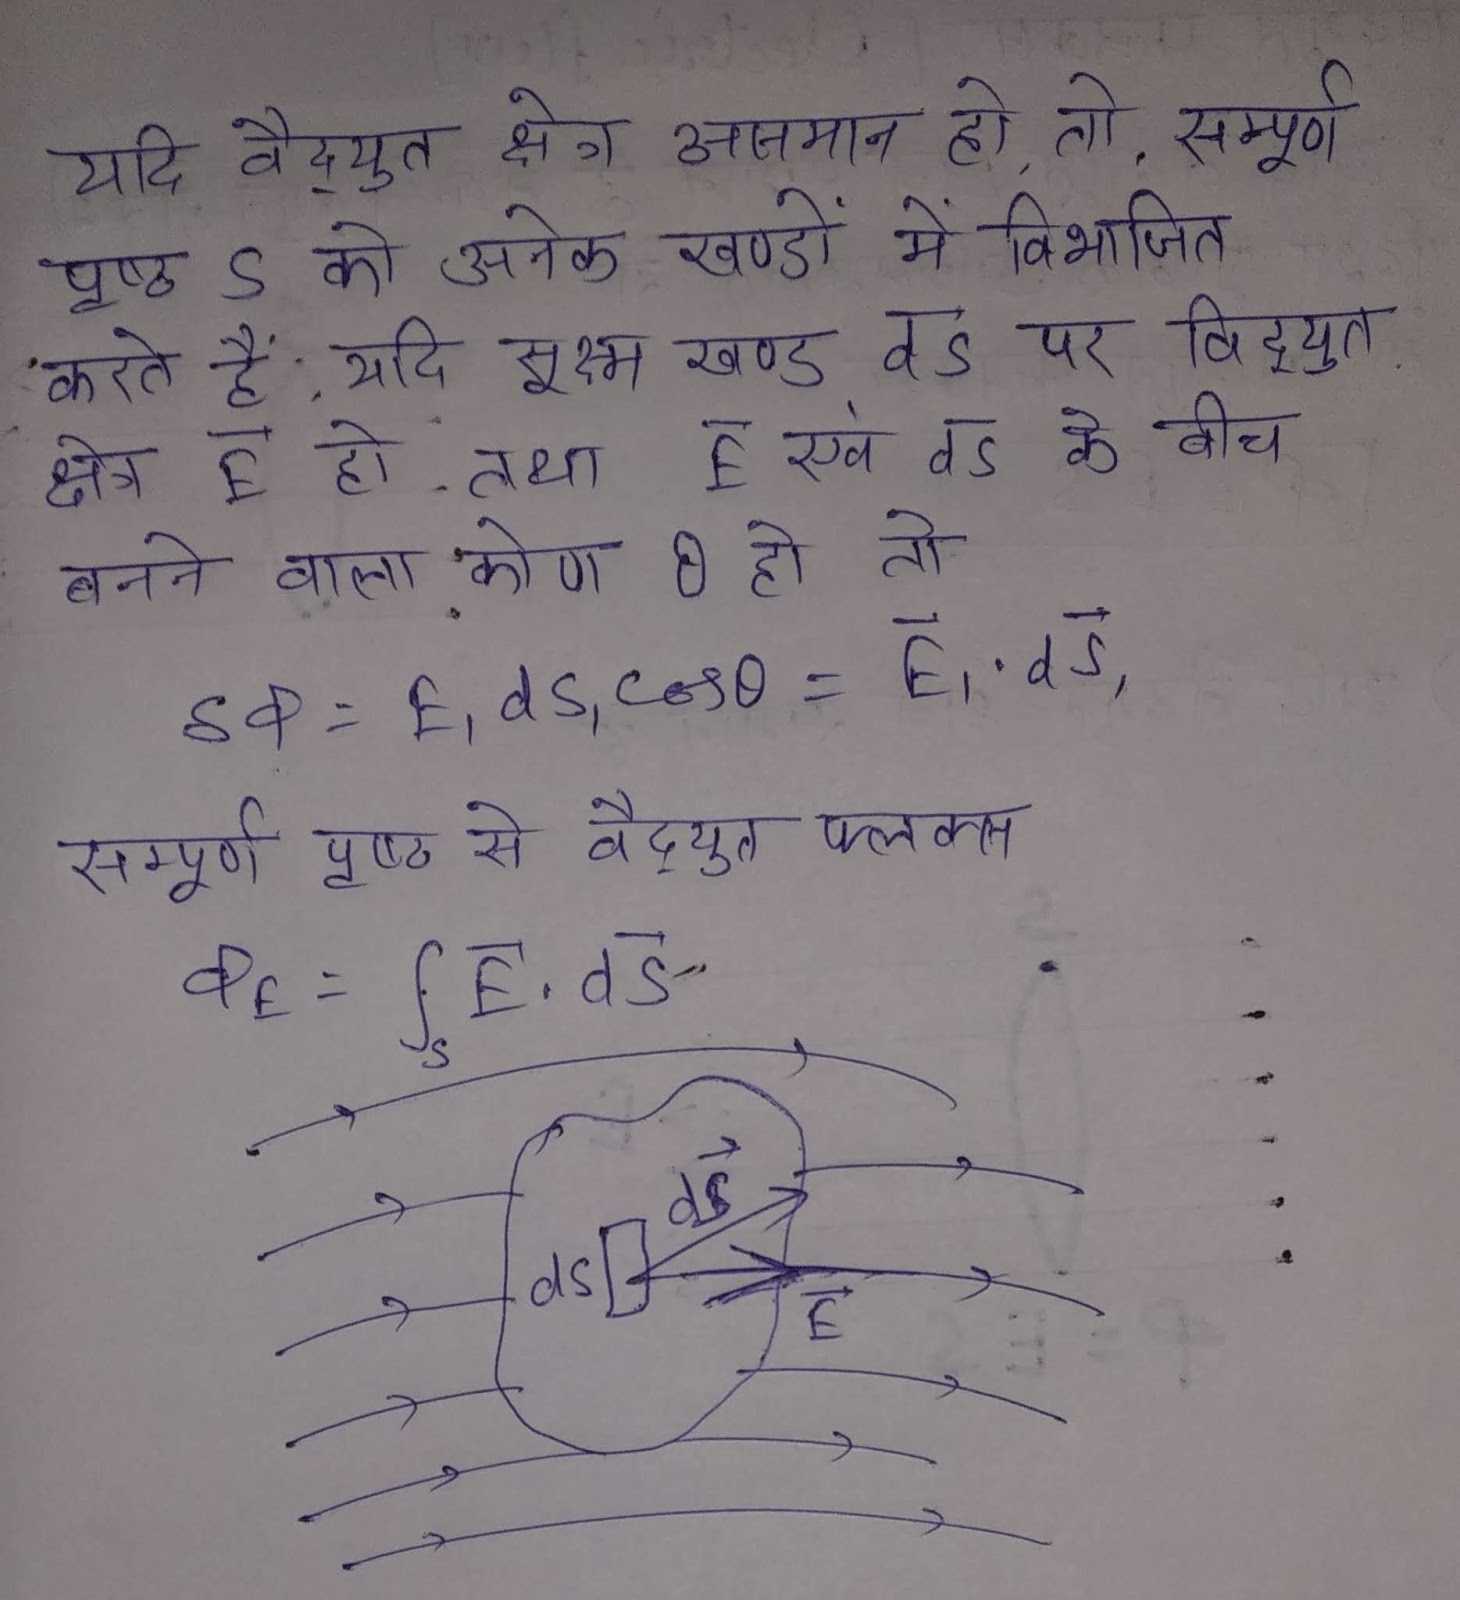 यदि वैद्युत क्षेत्र असमान हो, तो, सम्पूर्ण
पृष्ठ S को अनेक खण्डों में विभाजित
करते हैं. यदि सूक्ष्म खण्ड dS पर विद्युत
क्षेत्र E̅ हो तथा E̅ एवं dS̅ के बीच
बनने वाला कोण θ हो तो
δΦ = E₁ dS₁ cosθ = E⃗₁ · dS⃗₁
सम्पूर्ण पृष्ठ से वैद्युत फ्लक्स
Φ_E = ∫_S E⃗ · dS⃗
dS⃗
dS
E⃗